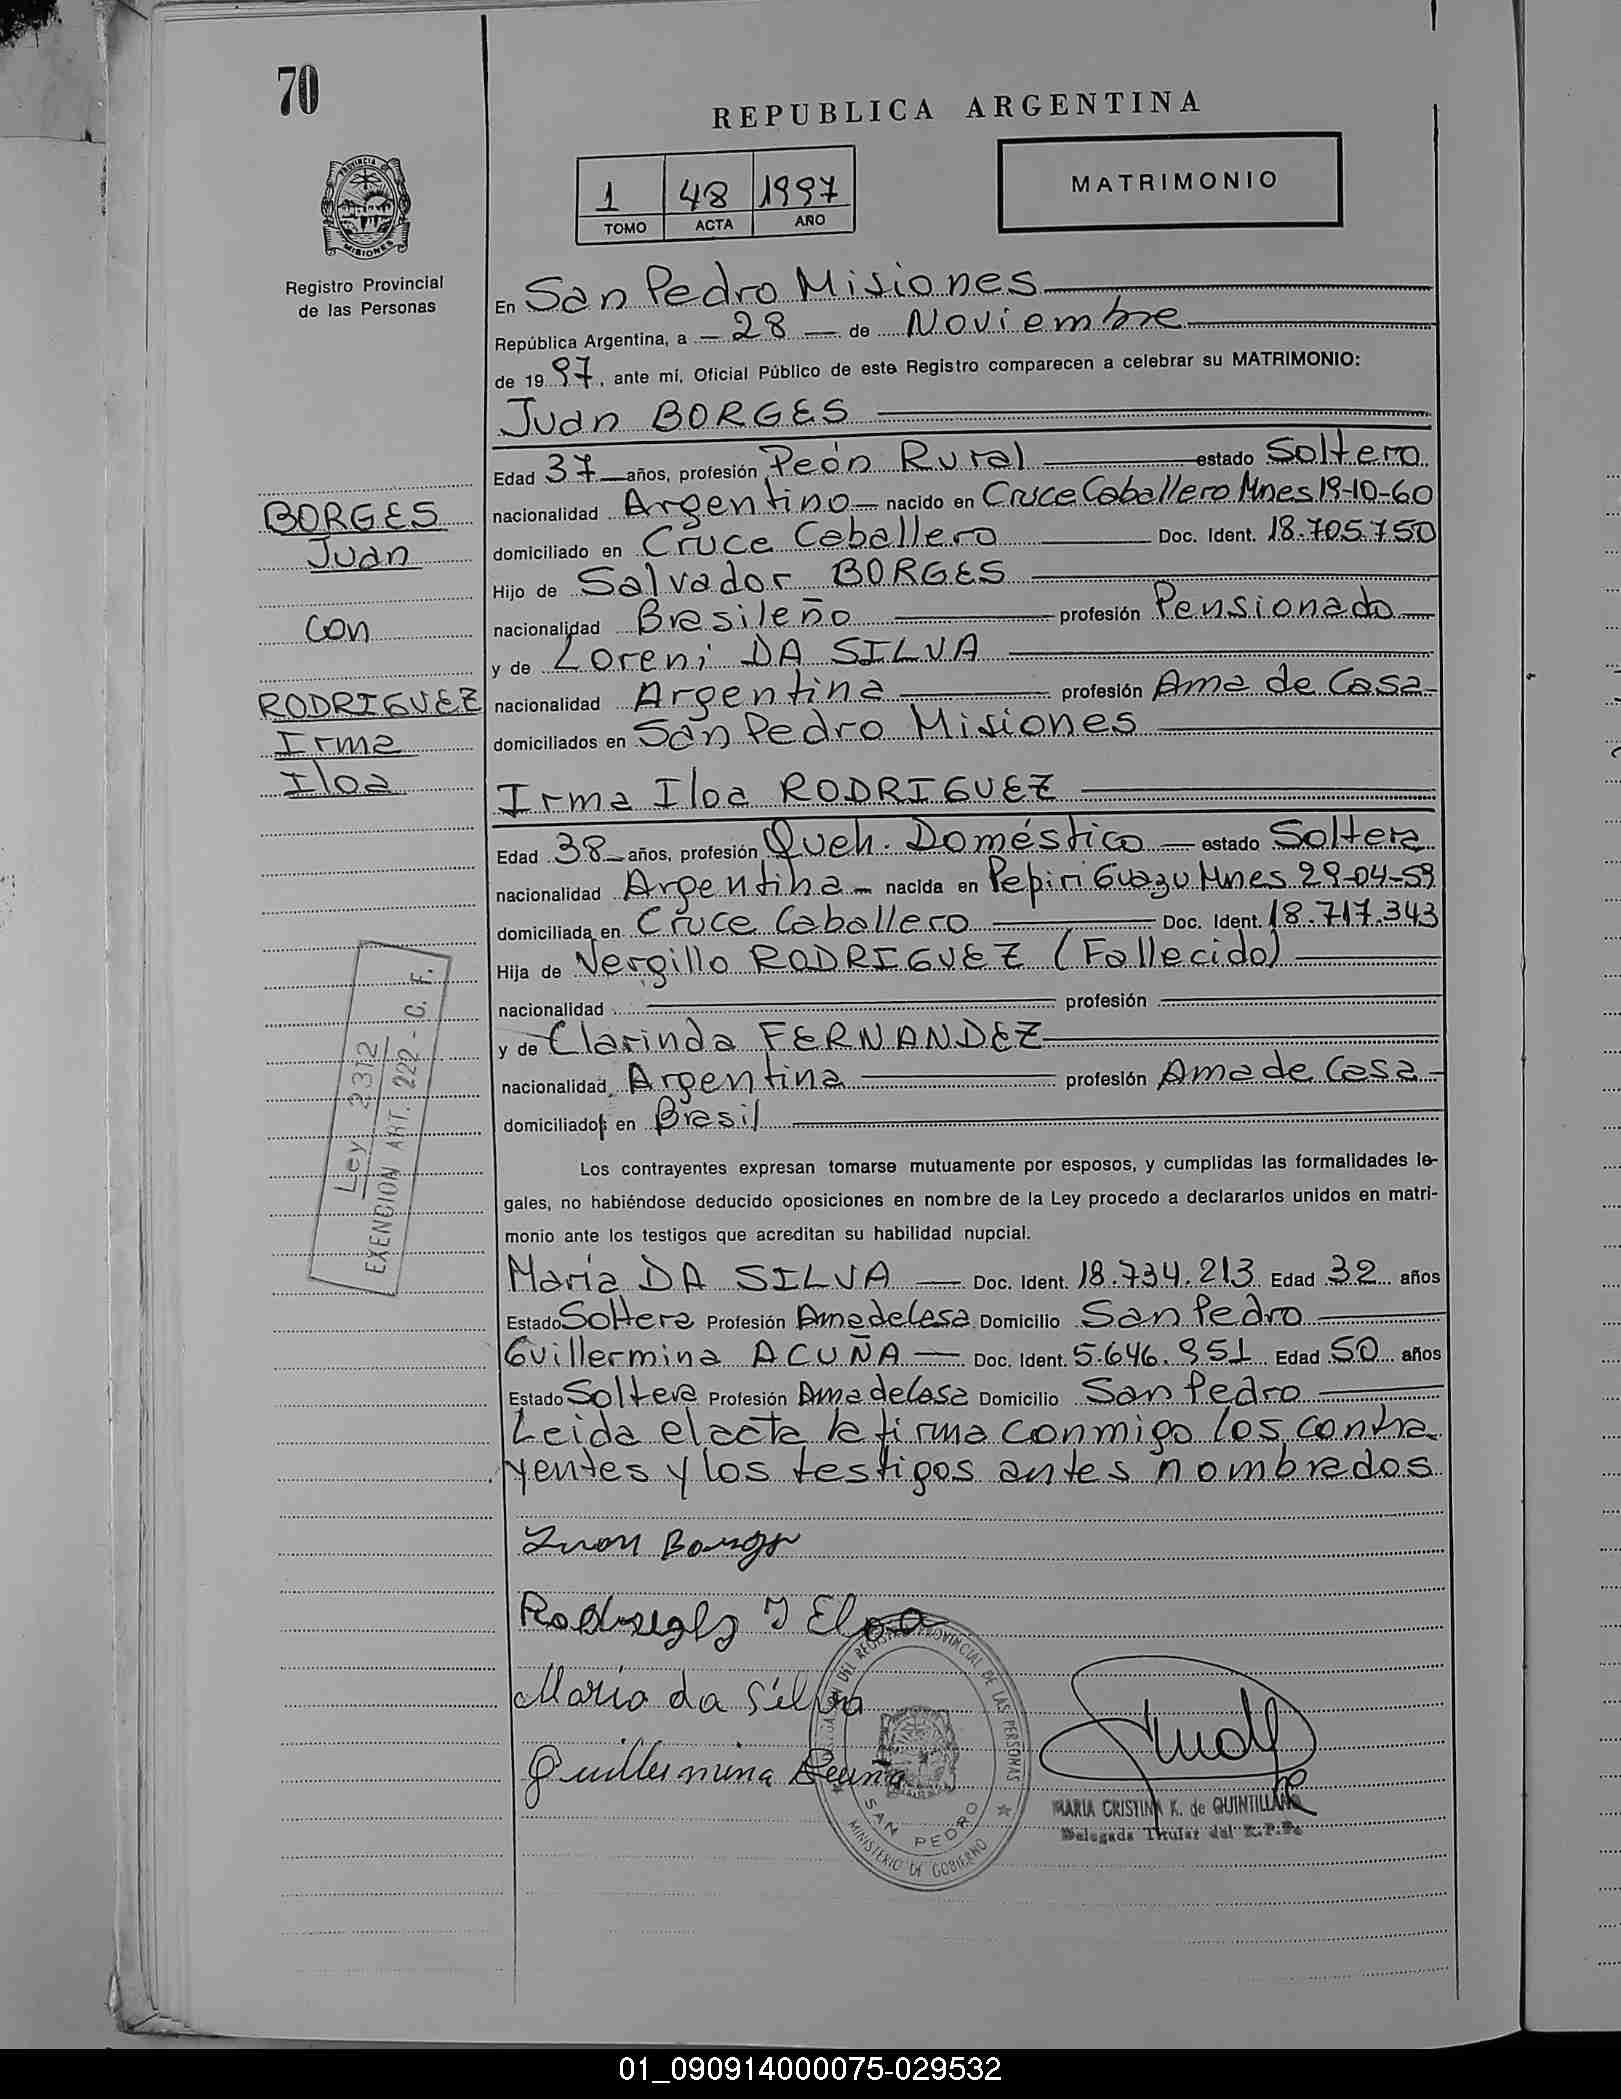 70
REPUBLICA ARGENTINA
PROVINCIA DE
MISIONES
Registro Provincial
de las Personas
1 48 1997
TOMO ACTA AÑO
MATRIMONIO
En San Pedro Misiones
República Argentina, a - 28 - de Noviembre
de 19 97, ante mí, Oficial Público de este Registro comparecen a celebrar su MATRIMONIO:
Juan BORGES
Edad 37 años, profesión Peón Rural estado Soltero
nacionalidad Argentino nacido en Cruce Caballero Mnes 19-10-60
domiciliado en Cruce Caballero Doc. Ident. 18.705.750
Hijo de Salvador BORGES
nacionalidad Brasileño profesión Pensionado
y de Loreni DA SILVA
nacionalidad Argentina profesión Ama de Casa
domiciliados en San Pedro Misiones
BORGES
Juan
con
RODRIGUEZ
Irma
Iloa
Irma Iloa RODRIGUEZ
Edad 38 años, profesión Queh. Doméstico estado Soltera
nacionalidad Argentina nacida en Pepiri Guazu Mnes 29-04-59
domiciliada en Cruce Caballero Doc. Ident. 18.717.343
Hija de Vergillo RODRIGUEZ (Fallecido)
nacionalidad profesión
y de Clarinda FERNANDEZ
nacionalidad Argentina profesión Ama de Casa
domiciliados en Brasil
Ley 2312
EXENCION ART. 222 - C. F.
Los contrayentes expresan tomarse mutuamente por esposos, y cumplidas las formalidades le-
gales, no habiéndose deducido oposiciones en nombre de la Ley procedo a declararlos unidos en matri-
monio ante los testigos que acreditan su habilidad nupcial.
María DA SILVA Doc. Ident. 18.734.213 Edad 32 años
Estado Soltera Profesión Ama de Casa Domicilio San Pedro
Guillermina ACUÑA Doc. Ident. 5.646.951 Edad 50 años
Estado Soltera Profesión Ama de Casa Domicilio San Pedro
Leida el acta la firma conmigo los contra
yentes y los testigos antes nombrados
Juan Borges
Rodriguez I Eloa
Maria da Silva
Guillermina Acuña
DEL REGISTRO PROVINCIAL DE LAS PERSONAS
SAN PEDRO
MINISTERIO DE GOBIERNO
MARIA CRISTINA K. de QUINTILLANO
Delegada Titular del R.P.P.
01_090914000075-029532